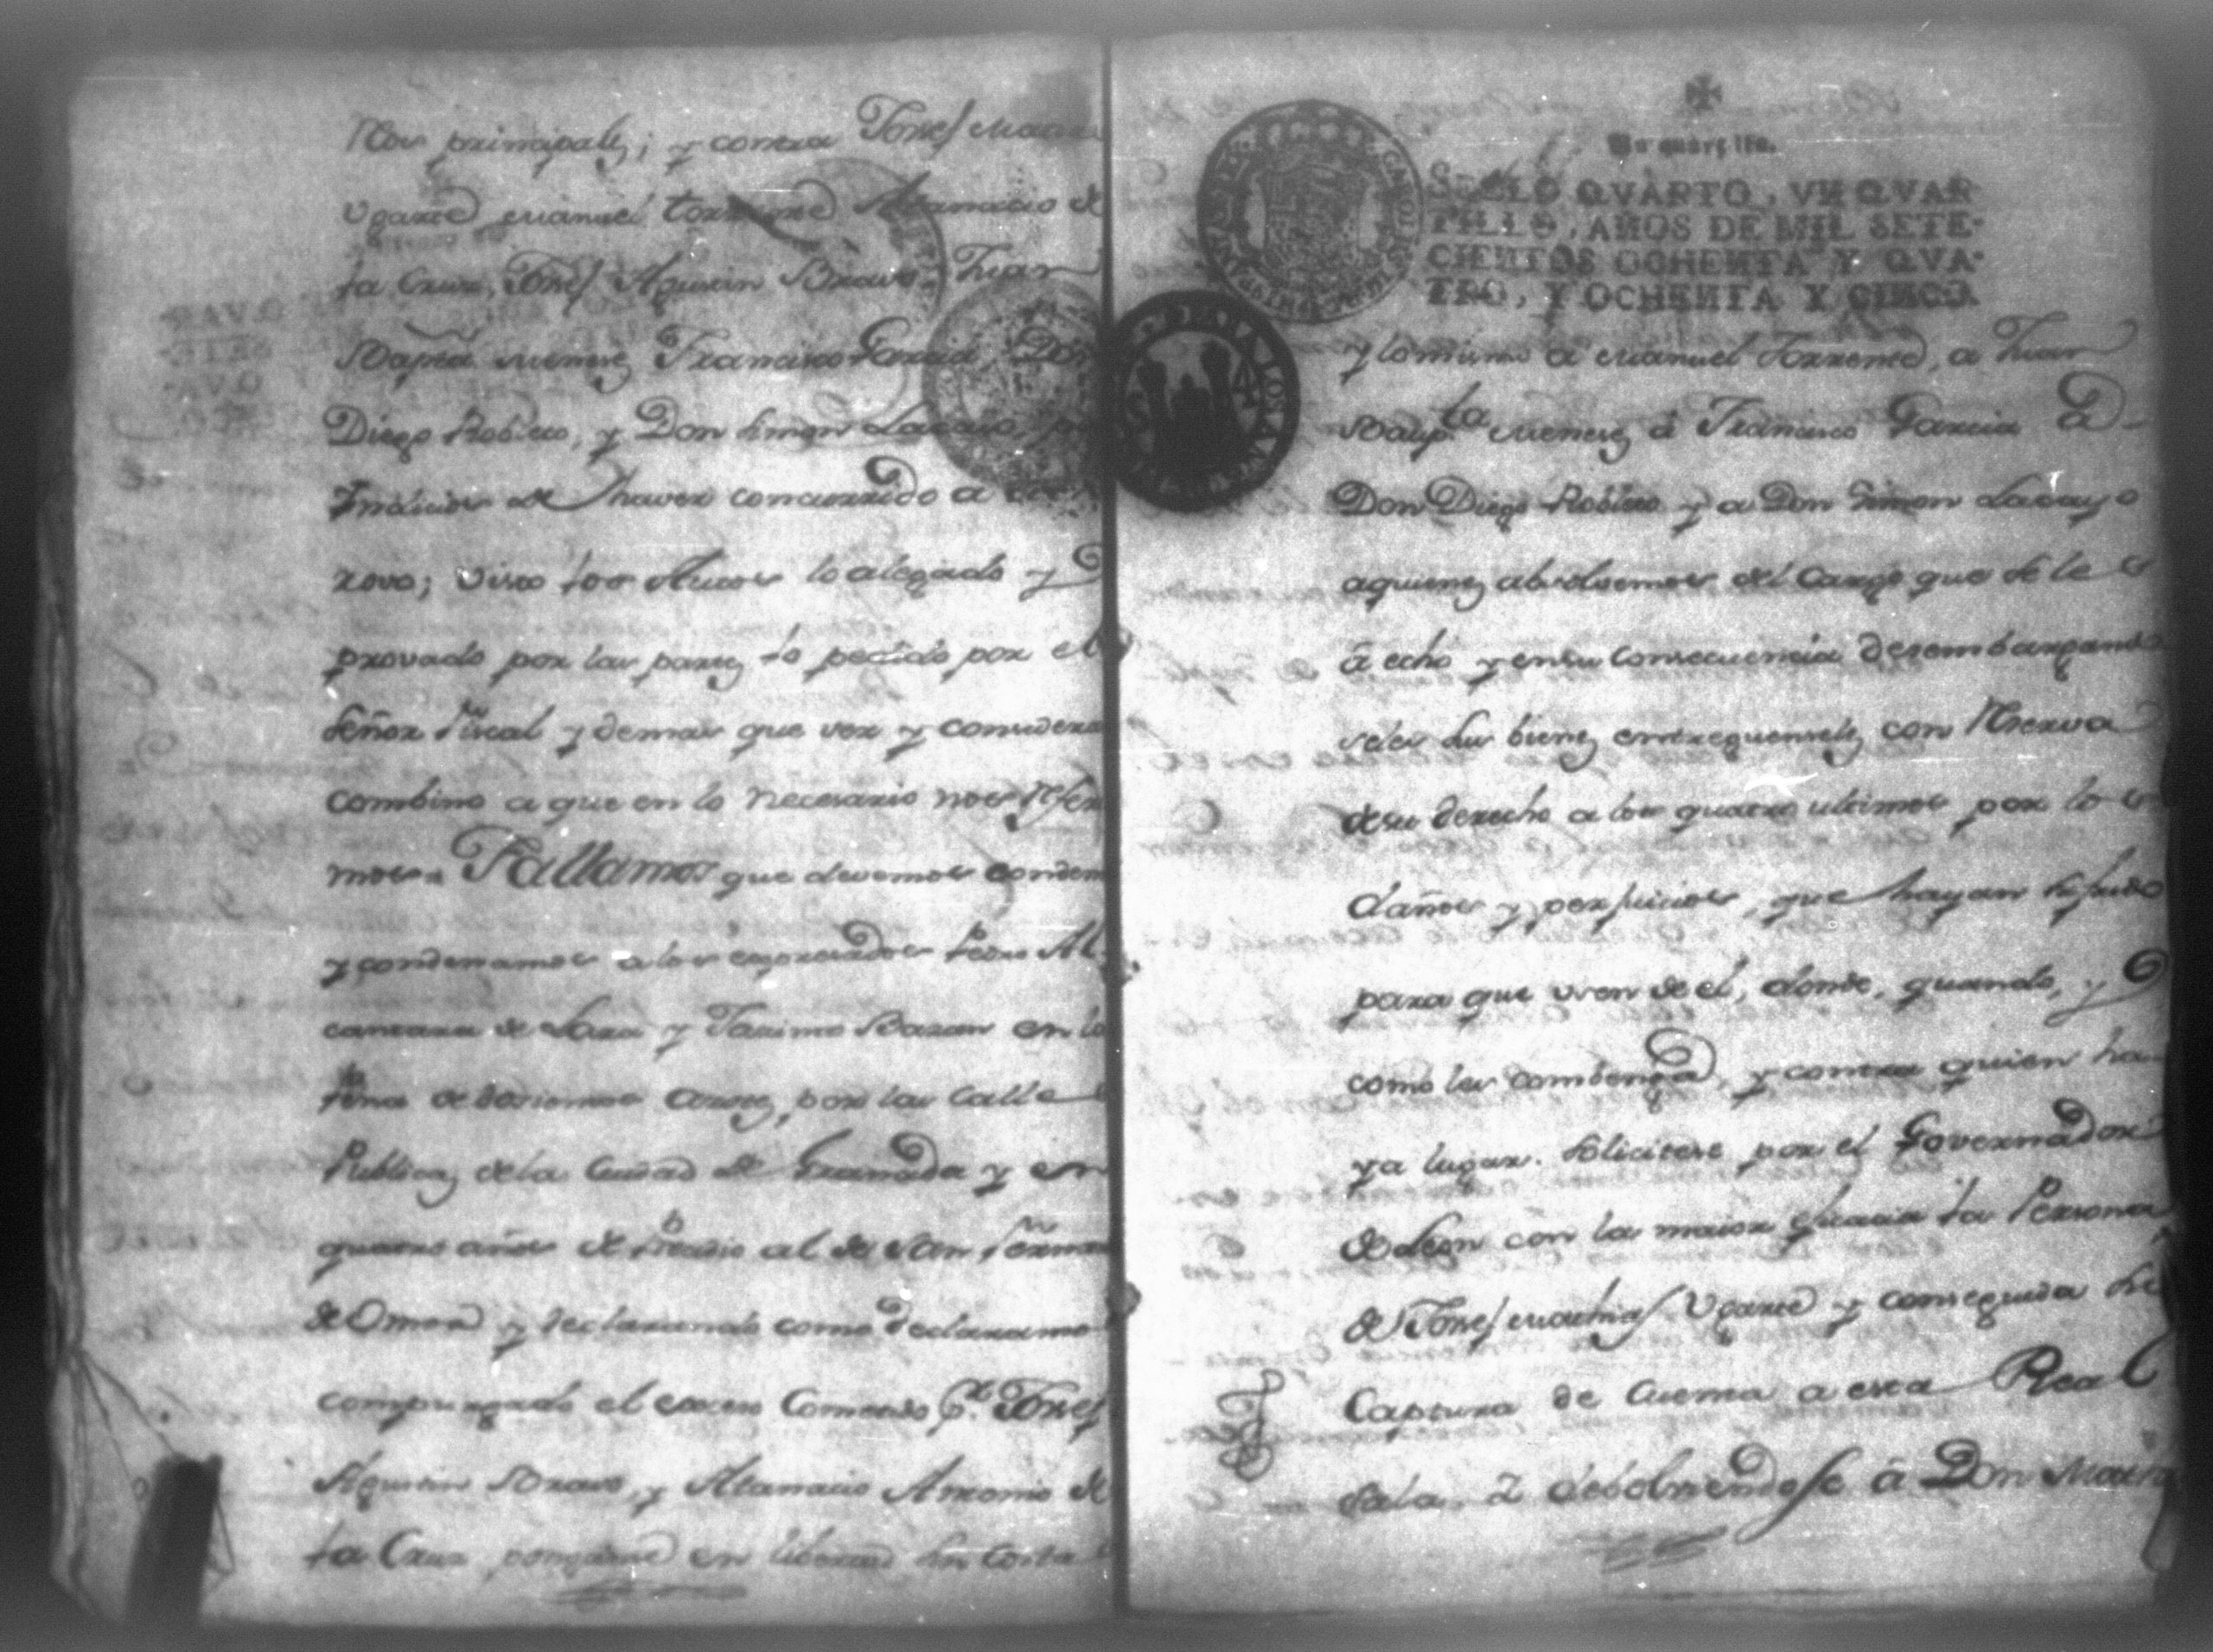 Ros principales; y contra Josef Matias
Ugarte Manuel Torrente Atanacio de
la Cruz, Josef Agustin Bravo, Juan
Bapta Menes Francisco Garcia, Don
Diego Robleto, y Don Simon Lacayo, por
Indicios de haver concurrido a
rovo; visto los Autos lo alegado y
provado por las partes lo pedido por el
Señor Fiscal y demas que ver y considerar
combino a que en lo necesario nos referi
mos. Fallamos que devemos condenar
y condenamos a los expresados Pedro Al
cantara de Lara y Jasinto Bazan en la
pena de dosientos azotes, por las calles
Publicas de la Ciudad de Granada y en
quatro años de Presidio al de San Fernando
de Omoa y declarando como declaramos
compurgado el exceso Cometido pr. Josef
Agustin Bravo, y Atanacio Antonio de
la Cruz pongase en livertad sin costa
Un quartillo.
SELLO QVARTO, VN QVAR
TILLO, AÑOS DE MIL SETE-
CIENTOS OCHENTA Y QVA-
TRO, Y OCHENTA Y CINCO
y lo mismo a Manuel Torrente, a Juan
Baupta Menes á Francisco Garcia á
Don Diego Robleto y a Don Simon Lacayo
aquienes absolvemos del Cargo que se les
á echo y en su Consecuencia desembargando
seles sus bienes entreguenseles con Rreserva
de su derecho a los quatro ultimos por los
daños y perjuicios, que hayan sufrido
para que usen de el, donde, quando, y
como les combenga, y contra quien ha
ya lugar. Solicitese por el Governador
de Leon con la maior eficacia la Persona
de Josef Mathias Ugarte y conseguida su
Captura de Cuenta a esta Real
Sala, y debolviendose á Don